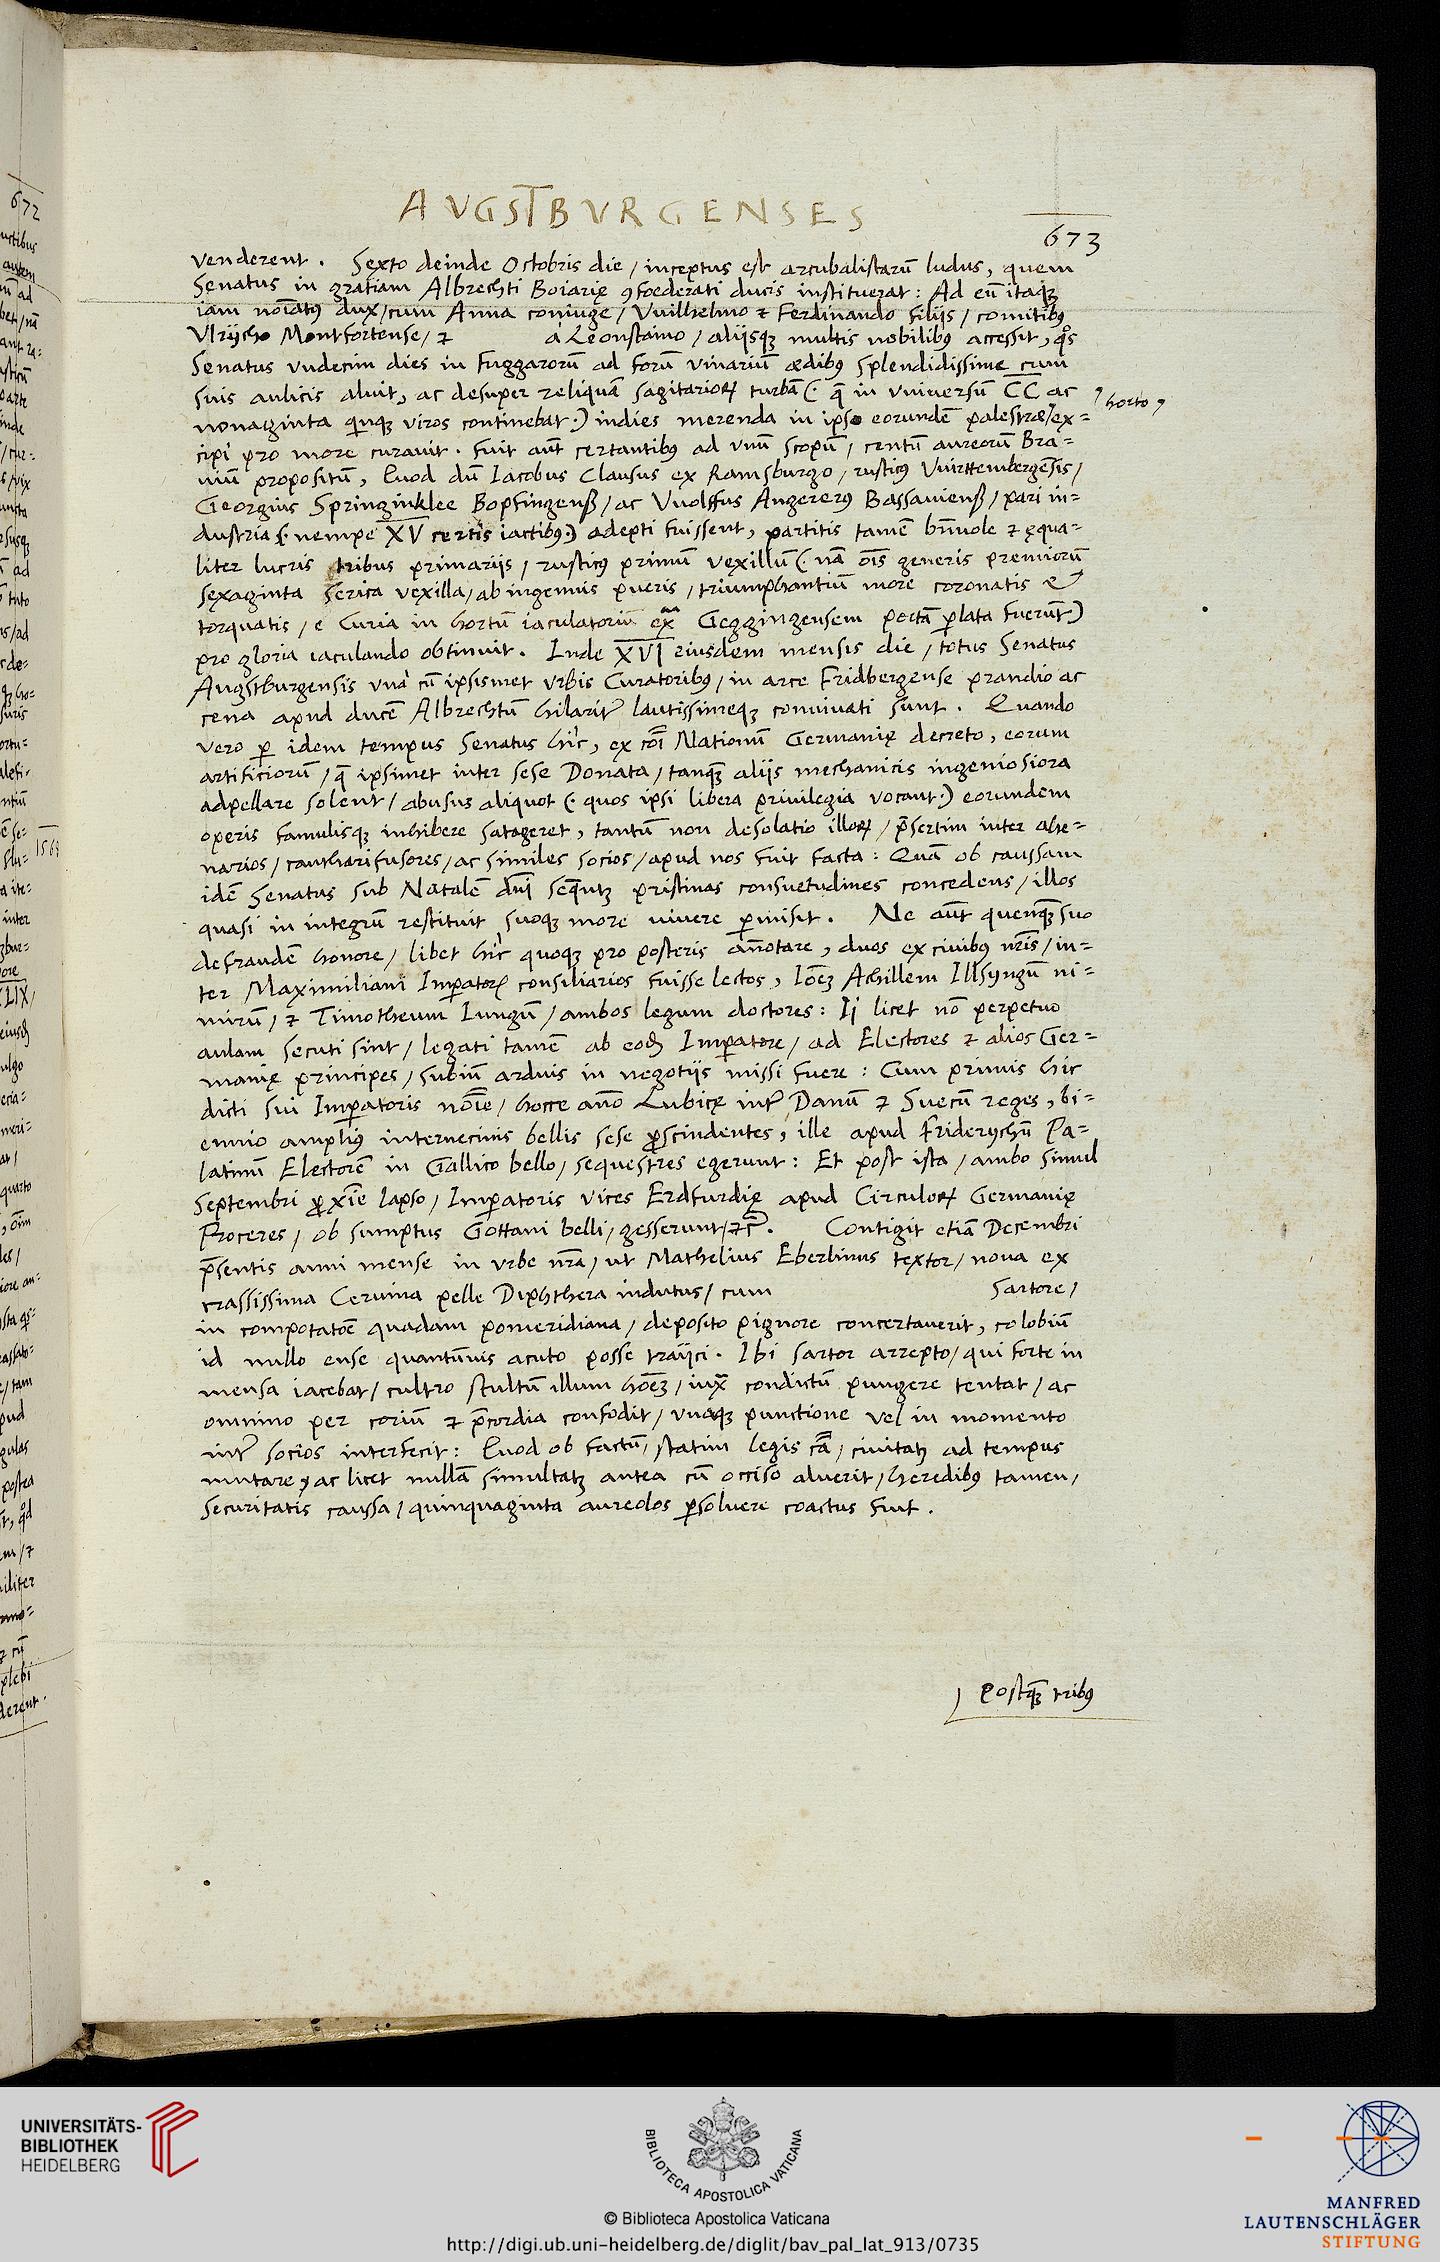 AUGSTBURGENSES
673
venderent. Sexto deinde Octobris die / inceptus est arcubalistarū ludus, quem
Senatus in gratiam Albrechti Boiarię ꝯfoederati ducis instituerat: Ad eū itaqꝫ
iam noīatus dux / cum Anna coniuge / Vuilhelmo ⁊ Ferdinando filijs / comitibꝰ
Vlrijcho Montfortense / ⁊ à Leonstaino / aliisqꝫ multis nobilibus accessit, qͦs
Senatus vndecim dies in Fuggarorū ad forū vinariū ædibꝰ splendidissime cum
suis aulicis aluit, ac desuper reliquā sagitarioꝝ turbā (· q̄ in vniversū CC ac
nonaginta qinqꝫ viros continebat ·) indies merenda in ipso eorundē palestræ / ex=
horto
cipi pro more curauit. Fuit aūt certantibus ad vnū scopū / centū aureorū Bra=
uiū propositū, Quod dū Iacobus Clausus ex Ramsburgo / rusticꝰ Vuirttembergēsis /
Georgius Springinklee Bopfingenß / ac Vuolffus Angererꝰ Bassauienß / pari in=
dustria (· nempe XV certis iactibus ·) adepti fuissent, partitis tamē bn̄uole ⁊ ęqua=
liter lucris tribus primarijs / rusticꝰ primū vexillū (· nā oīs generis premiorū
sexaginta serica vexilla / ab ingenuis pueris / triumphantiū more coronatis &
torquatis / e Curia in hortū iaculatoriū ex̄a Geggingensem portā ꝑlata fuerūt)
pro gloria iaculando obtinuit. Inde XVI eiusdem mensis die / totus Senatus
Augstburgensis vnà cū ipsismet vrbis Curatoribus / in arce Fridbergense prandio ac
cena apud ducē Albrechtū hilarit̄ lautissimeqꝫ conuiuati sunt. Quando
vero ꝑ idem tempus Senatus hic, ex coī Nationū Germanię decreto, eorum
artificiorū / q̄ ipsimet inter sese Donata / tanqꝫ aliis mechanicis ingeniosiora
adpellare solent / abusus aliquot (· quos ipsi libera priuilegia vocant ·) eorundem
operis famulisqꝫ inhibere satageret, tantū non desolatio illoꝝ / p̄sertim inter ahe=
narios / cantharifusores / ac similes socios / apud nos fuit facta: Quā ob caussam
idē Senatus sub Natalē dn̄i seq̄ntꝫ pristinas consuetudines concedens / illos
quasi in integrū restituit suoqꝫ more viuere ꝑmisit. Ne aūt quenqꝫ suo
defraudē honore / libet hic quoqꝫ pro posteris an̄otare, duos ex ciuibus nr̄is / in=
ter Maximiliani Imꝑatorꝭ consiliarios fuisse lectos, Ioēꝫ Achillem Illsyngū ni=
mirū / ⁊ Timotheum Iungū / ambos legum doctores: Ij licet nō perpetuo
aulam secuti sint / legati tamē ab eodē Imꝑatore / ad Electores ⁊ alios Ger=
manię principes / subiū arduis in negotijs missi fuere: Cum primis hic
dicti sui Imꝑatoris noīe / hocce an̄o Lubicę int̄ Danū ⁊ Suecū reges, bi=
ennio ampliꝰ internecinis bellis sese ꝓscindentes, ille apud Friderychū Pa=
latinū Electorē in Gallico bello / sequestres egerunt: Et post ista / ambo simul
Septembri ꝓxīe lapso / Imꝑatoris vices Erdfurdię apud Circuloꝝ Germanię
Proceres / ob sumptus Gottani belli / gesserunt / ⁊c̄. Contigit etiā Decembri
p̄sentis anni mense in vrbe nr̄a / ut Mathelius Eberlinus textor / noua ex
crassissima Ceruina pelle Diphthera indutus / cum Sartore /
in compotatōe quadam pomeridiana / deposito pignore concertauerit, colobiū
id nullo ense quantūuis acuto posse traijci. Ibi sartor arrepto / qui forte in
mensa iacebat / cultro stultū illum hoēꝫ / iux̄ condictū pungere tentat / ac
omnino per coriū ⁊ p̄cordia confodit / vnaqꝫ punctione vel in momento
int̄ socios interfecit: Quod ob factū / statim legis cā / ciuitatꝫ ad tempus
mutare, ac licet nullā simultatꝫ antea cū occiso aluerit / heredibꝰ tamen /
securitatis caussa / quinquaginta aureolos ꝑsoluere coactus fuit.
Postqꝫ tribꝰ
672
1563
UNIVERSITÄTS-
BIBLIOTHEK
HEIDELBERG
BIBLIOTECA APOSTOLICA VATICANA
© Biblioteca Apostolica Vaticana
http://digi.ub.uni-heidelberg.de/diglit/bav_pal_lat_913/0735
MANFRED
LAUTENSCHLÄGER
STIFTUNG